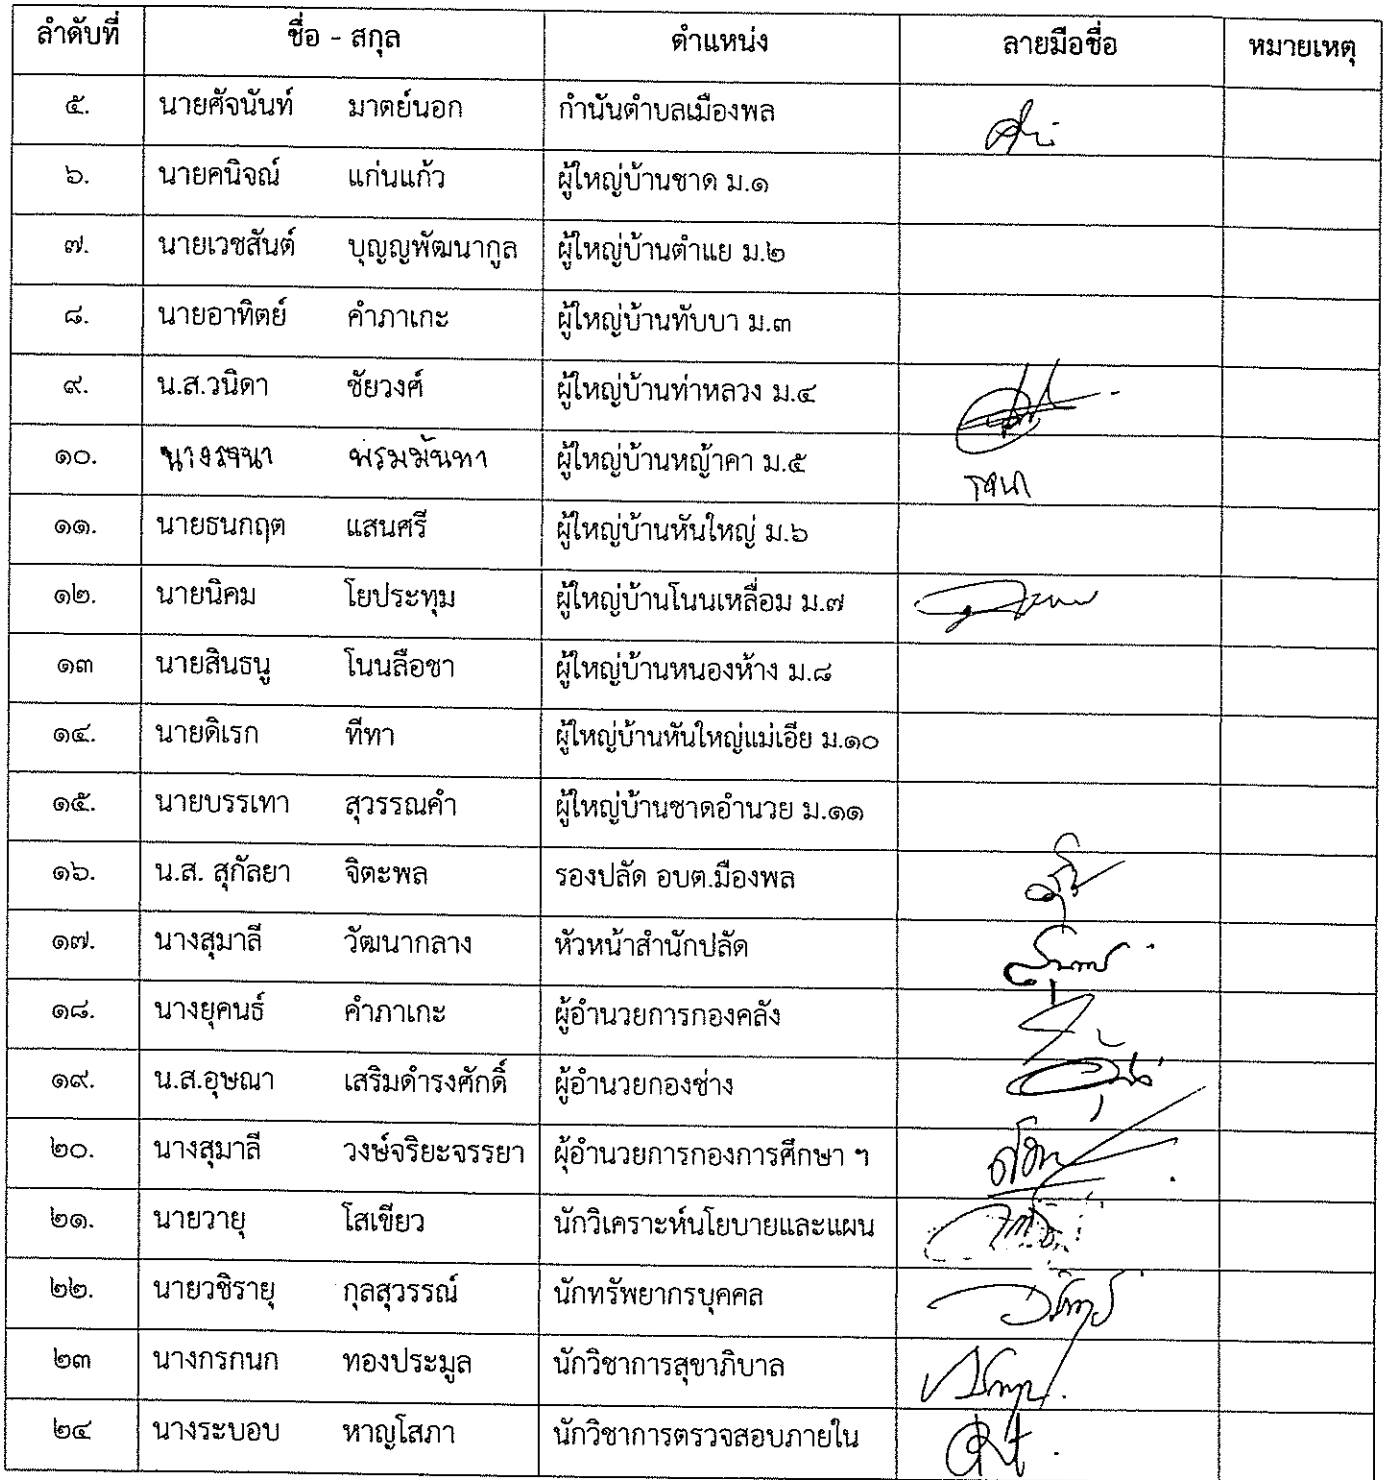 ลำดับที่ ชื่อ - สกุล ตำแหน่ง ลายมือชื่อ หมายเหตุ
๕. นายศัจนันท์ มาตย์นอก กำนันตำบลเมืองพล
๖. นายคนิจณ์ แก่นแก้ว ผู้ใหญ่บ้านชาด ม.๑
๗. นายเวชสันต์ บุญญพัฒนากูล ผู้ใหญ่บ้านตำแย ม.๒
๘. นายอาทิตย์ คำภาเกะ ผู้ใหญ่บ้านทับบา ม.๓
๙. น.ส.วนิดา ชัยวงศ์ ผู้ใหญ่บ้านท่าหลวง ม.๔
๑๐. นางรจนา พรมมันทา ผู้ใหญ่บ้านหญ้าคา ม.๕ รจนา
๑๑. นายธนกฤต แสนศรี ผู้ใหญ่บ้านหันใหญ่ ม.๖
๑๒. นายนิคม โยประทุม ผู้ใหญ่บ้านโนนเหลื่อม ม.๗
๑๓ นายสินธนู โนนลือชา ผู้ใหญ่บ้านหนองห้าง ม.๘
๑๔. นายดิเรก ทีทา ผู้ใหญ่บ้านหันใหญ่แม่เอีย ม.๑๐
๑๕. นายบรรเทา สุวรรณคำ ผู้ใหญ่บ้านชาดอำนวย ม.๑๑
๑๖. น.ส. สุกัลยา จิตะพล รองปลัด อบต.มืองพล
๑๗. นางสุมาลี วัฒนากลาง หัวหน้าสำนักปลัด
๑๘. นางยุคนธ์ คำภาเกะ ผู้อำนวยการกองคลัง
๑๙. น.ส.อุษณา เสริมดำรงศักดิ์ ผู้อำนวยกองช่าง
๒๐. นางสุมาลี วงษ์จริยะจรรยา ผุ้อำนวยการกองการศึกษา ฯ
๒๑. นายวายุ โสเขียว นักวิเคราะห์นโยบายและแผน
๒๒. นายวชิรายุ กุลสุวรรณ์ นักทรัพยากรบุคคล
๒๓ นางกรกนก ทองประมูล นักวิชาการสุขาภิบาล
๒๔ นางระบอบ หาญโสภา นักวิชาการตรวจสอบภายใน